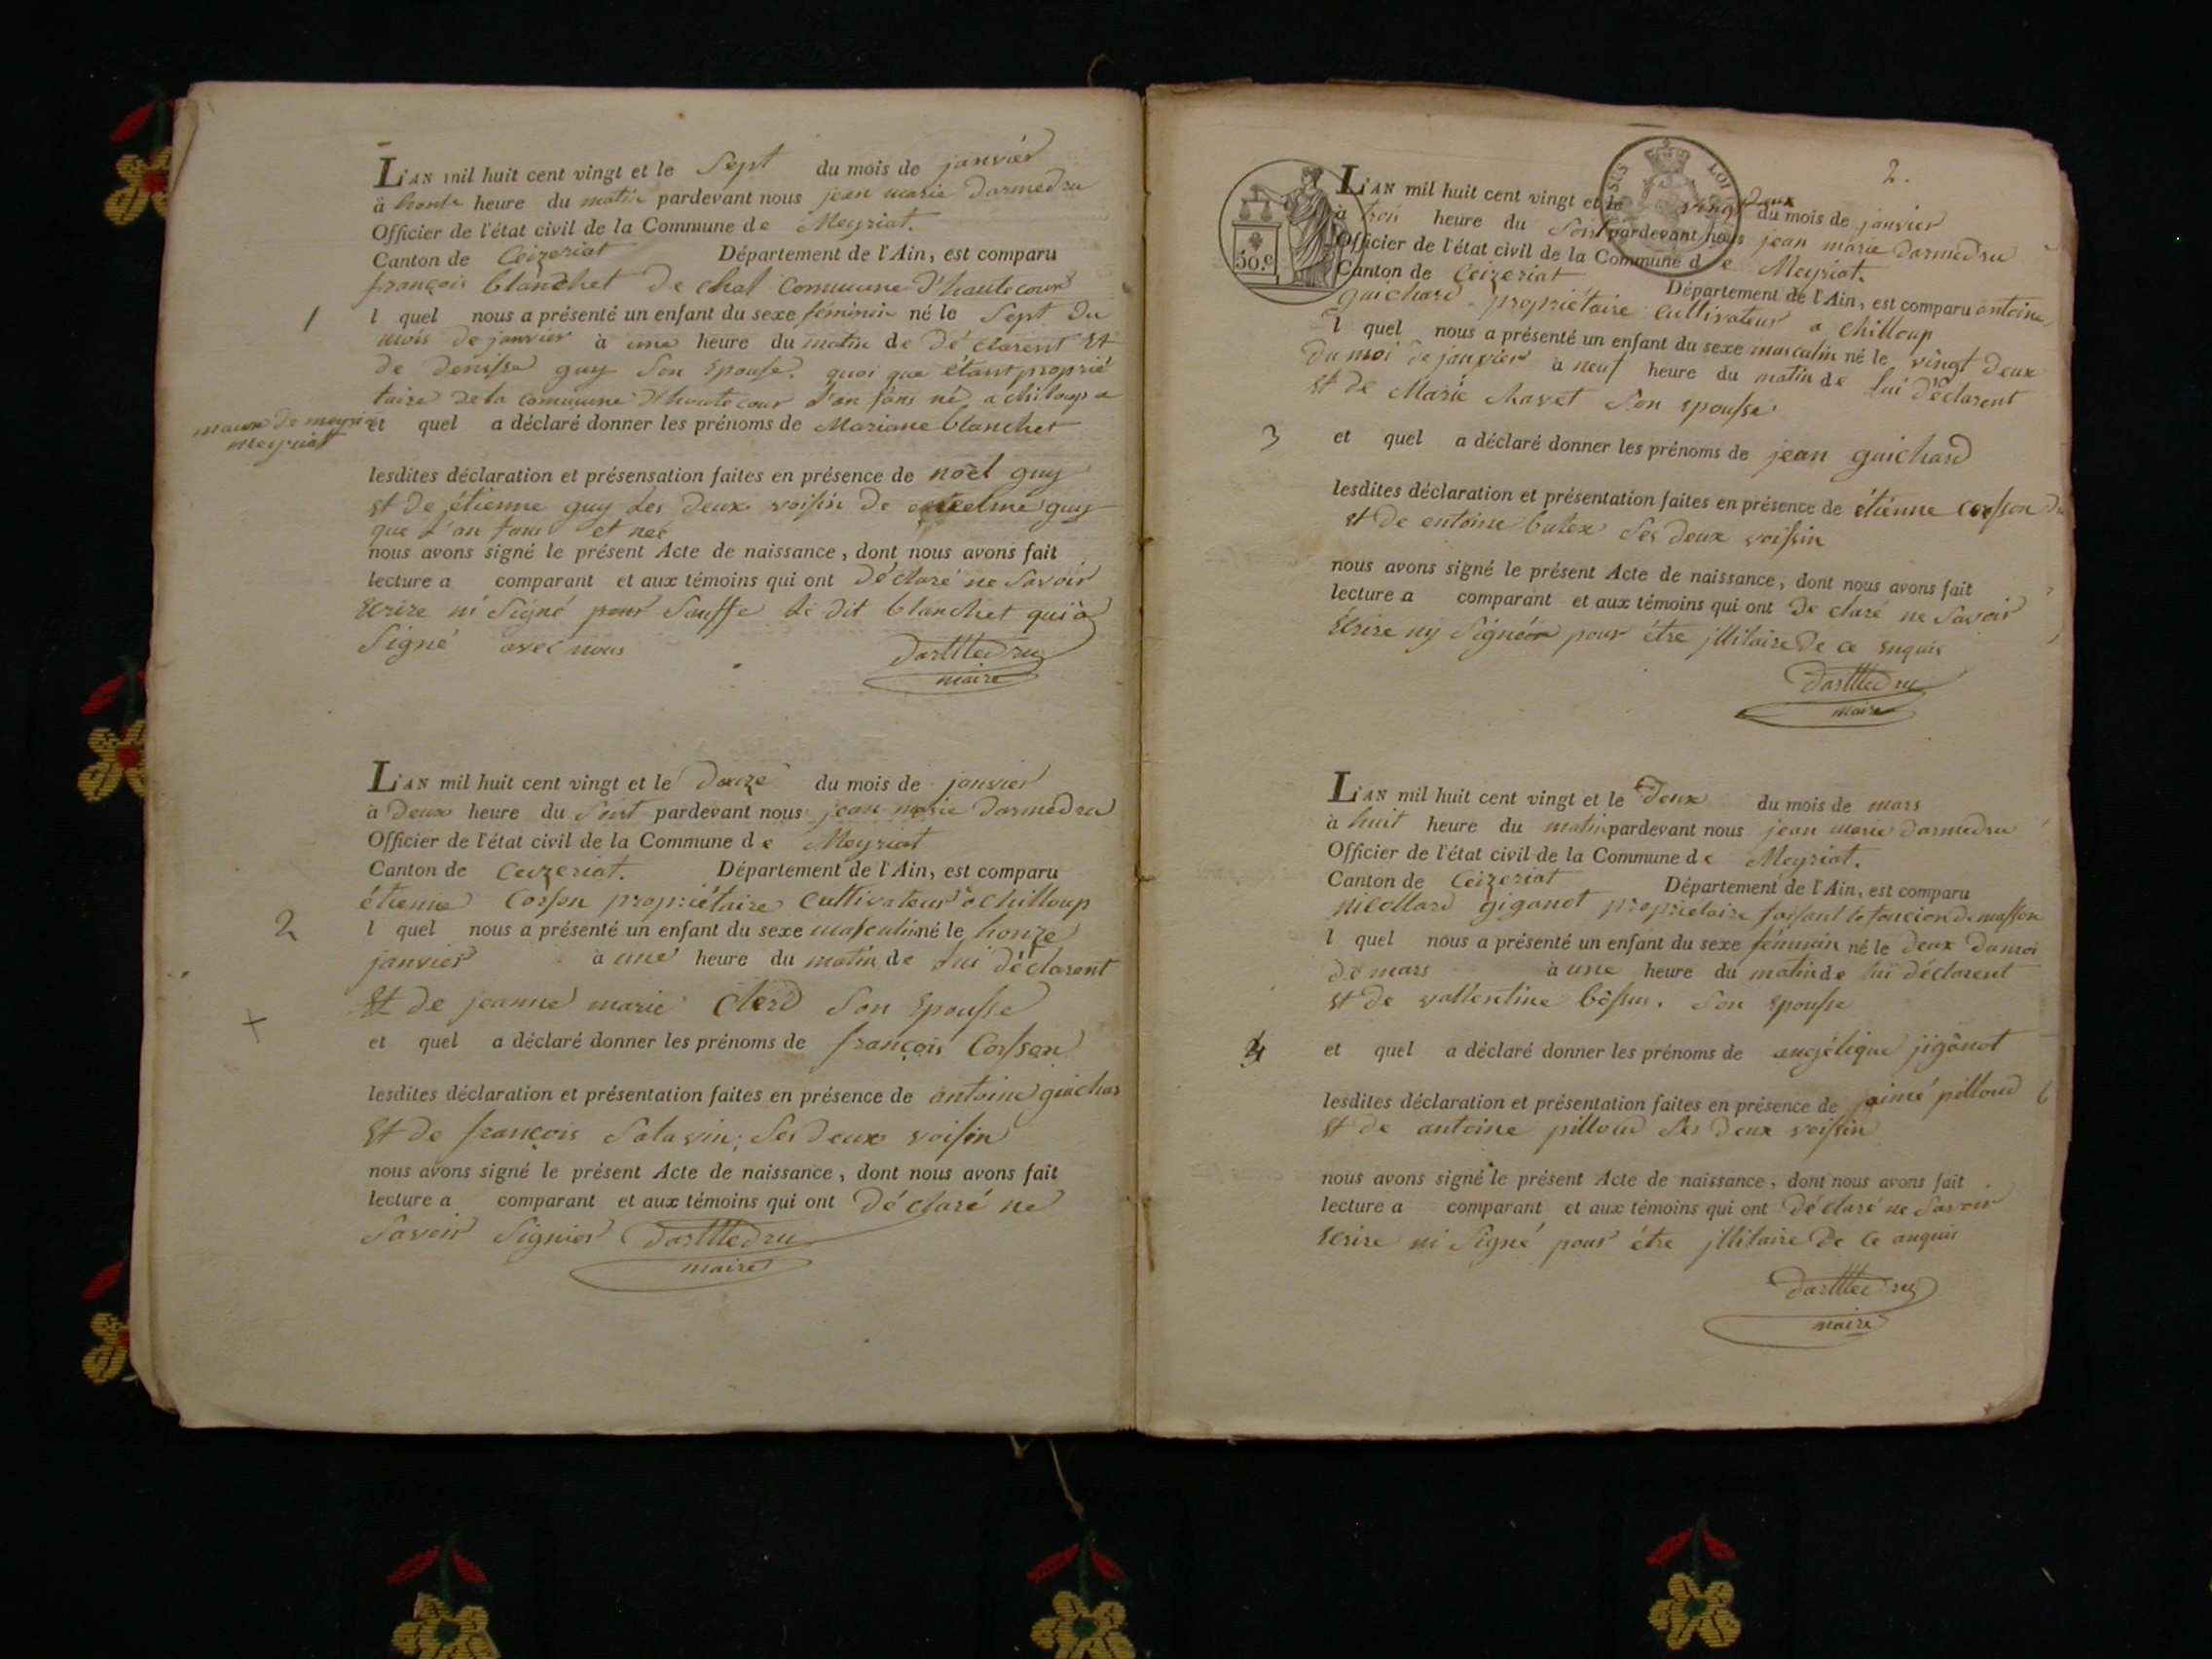 L'AN mil huit cent vingt et le Sept du mois de janvier
à honze heure du matin pardevant nous jean marie darmedru
Officier de l'état civil de la Commune de Meyriat.
Canton de Ceizeriat Département de l'Ain, est comparu
françois blanchet De chal Commune D'hautecour
1
l quel nous a présenté un enfant du sexe féminin né le Sept Du
mois De janvier à une heure du matin de Dé clarent Et
De denisse guy Son Epousse. quoi que étant proprié
taire De la Commune D'hautecour L'an fans né a chiloup
maire de
meyriat
et quel a déclaré donner les prénoms de Mariane blanchet
lesdites déclaration et présensation faites en présence de noël guy
Et De étienne guy Les Deux voissin De guy
que L'an fans et neé
nous avons signé le présent Acte de naissance, dont nous avons fait
lecture a comparant et aux témoins qui ont Déclaré ne Savoir
Ecrire ni Signé pour Sauffe Le dit blanchet qui a
Signé avec nous Darmedru
maire
L'AN mil huit cent vingt et le Douze du mois de janvier
à Deux heure du Soirt pardevant nous jean marie Darmedru
Officier de l'état civil de la Commune de Meyriat
Canton de Ceizeriat. Département de l'Ain, est comparu
étienne Corsson propriétaire Cultivateur a chilloup
2
l quel nous a présenté un enfant du sexe masculin né le honze
janvier à une heure du matin de Lui déclarent
Et De jeanne marie Clerd Son Epousse
+
et quel a déclaré donner les prénoms de françois Corsson
lesdites déclaration et présentation faites en présence de antoine guichar
Et De françois Salavin, Ses Deux voissin
nous avons signé le présent Acte de naissance, dont nous avons fait
lecture a comparant et aux témoins qui ont Déclaré ne
Savoir Signier Darmedru
maire
2.
SUS LOI
50.c
L'AN mil huit cent vingt et le vingt Deux du mois de janvier
à trois heure du Soirt pardevant nous jean marie darmedru
Officier de l'état civil de la Commune de Meyriat.
Canton de Ceizeriat Département de l'Ain, est comparu antoine
guichard propriétaire Cultivateur a chilloup
l quel nous a présenté un enfant du sexe masculin né le vingt Deux
Du moi De janvier à neuf heure du matin de Lui Déclarent
Et De Marie Chavet Son Epousse
3
et quel a déclaré donner les prénoms de jean guichard
lesdites déclaration et présentation faites en présence de étienne Corsson
Et De entoine balex Ses Deux voissin
nous avons signé le présent Acte de naissance, dont nous avons fait
lecture a comparant et aux témoins qui ont De claré ne Savoir
Ecrire ny Signér pour être jllitaire De ce Enquis
Darmedru
maire
L'AN mil huit cent vingt et le Deux du mois de mars
à huit heure du matin pardevant nous jean marie darmedru
Officier de l'état civil de la Commune de Meyriat.
Canton de Ceizeriat Département de l'Ain, est comparu
nicollard giganot propriétaire faissant le foncion de masson
l quel nous a présenté un enfant du sexe féminin né le Deux Du moi
De mars à une heure du matin de lui déclarent
Et De vallentine bôssu. Son Epousse
4
et quel a déclaré donner les prénoms de angélique jigânot
lesdites déclaration et présentation faites en présence de jaimé pilloud
Et De antoine pilloud Ses Deux voissin
nous avons signé le présent Acte de naissance, dont nous avons fait
lecture a comparant et aux témoins qui ont Déclaré ne Savoir
Ecrire ni Signé pour être jllitaire De ce anquis
Darmedru
maire